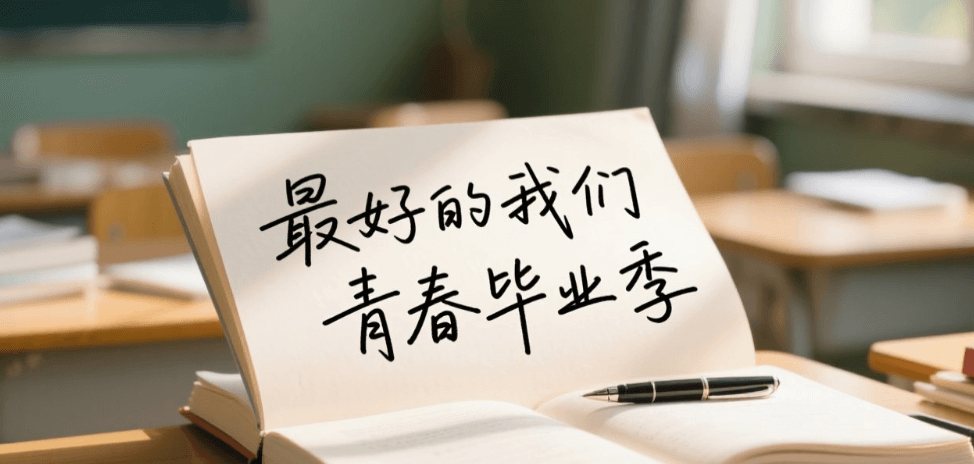 最好的我们
青春毕业季